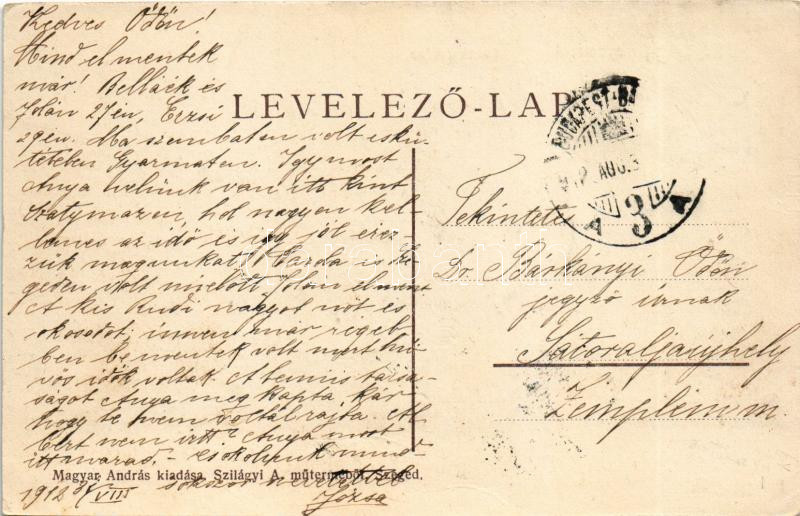 Kedves Ödön!
Mind elmentek
már! Belláék és
Jolán 27én, Erzsi
29én. Ma szombaton volt eskü-
tételen Gyarmaton. Igy most
Anya velünk van itt kint
Szatymazon, hol nagyon kel-
lemes az idő és igy jól érez-
zük magunkat. is Sze-
geden volt mielőtt Jolán elment
A kis Rudi nagyot nőt és
okosodot; innen már regeb-
ben bementek volt mert hü-
vös idők voltak. A tennis társa-
ságot Anya meg kapta, kár
hogy te nem voltál rajta. Al-
bert nem irt? Anya most
itt marad. - csókolunk mind-
sokszor szeretettel
1912 VIII
Józsa
LEVELEZŐ-LAP
BUDAPEST
912 AUG. 3
A 3 A
Tekintetes
Dr. Bárkányi Ödön
jegyző úrnak
Sátoraljaujhely
Zemplén m.
Magyar András kiadása, Szilágyi A. műterméből, Szeged.
darabanth